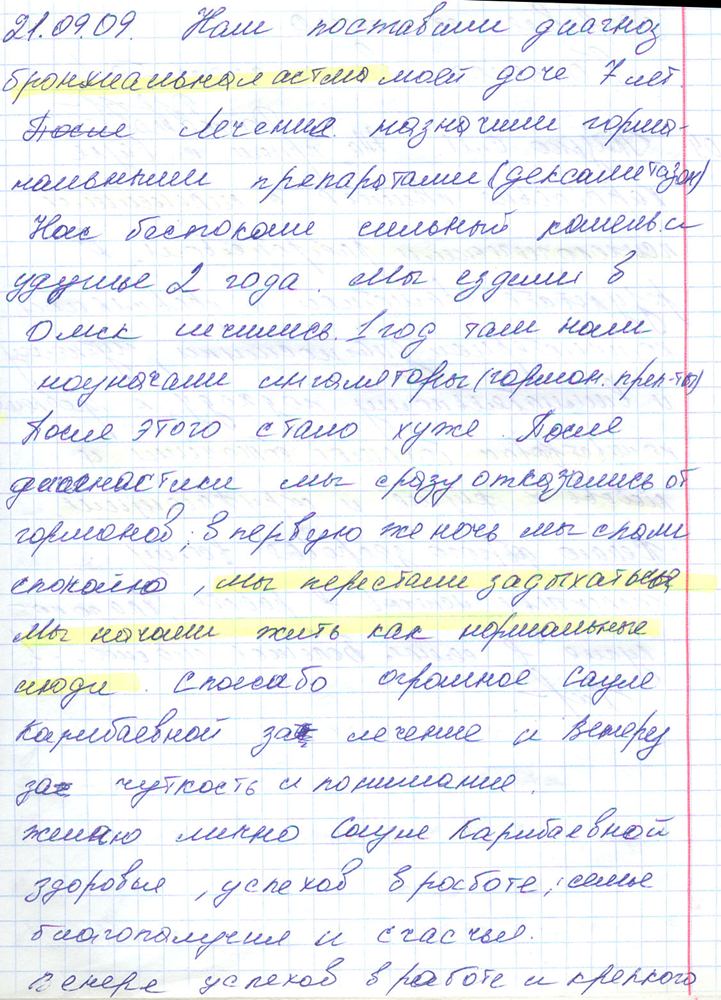 21.09.09. Нам поставили диагноз
бронхиальная астма моей доче 7 лет.
После Лечение назначили гормо-
нальными препаратами (дексаметазон)
Нас беспокоил сильный кашель и
удушье 2 года. Мы ездили в
Омск лечились. 1 год там нам
назначали ингаляторы (гормон. преп-ты)
После этого стало хуже. После
диагностики мы сразу отказались от
гормонов, в первую же ночь мы спали
спокойно, мы перестали задыхаться
Мы начали жить как нормальные
люди. Спасибо огромное Сауле
Карибаевной за лечение и Венеру
за чуткость и понимание.
желаю лично Сауле Карибаевной
здоровья, успехов в работе, семье
благополучия и счастья.
Венере успехов в работе и крепкого